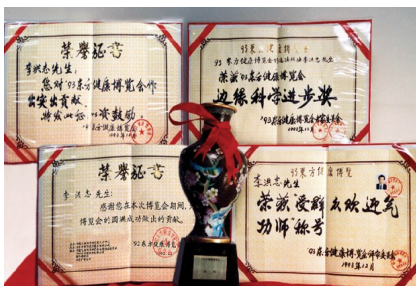 荣誉证书
李洪志先生:
您对'93东方健康博览会作
出突出贡献,
特发此证,以资鼓励
'93东方健康博览会
93东方健康博览会
李洪志先生
荣获'93东方健康博览会
边缘科学进步奖
'93东方健康博览会
1993年12月
荣誉证书
李洪志先生:
感谢您在本次博览会期间,为
博览会的圆满成功做出的贡献。
93东方健康博览
李洪志先生
荣获受群众欢迎气
功师称号
93东方健康博览会
1993年12月